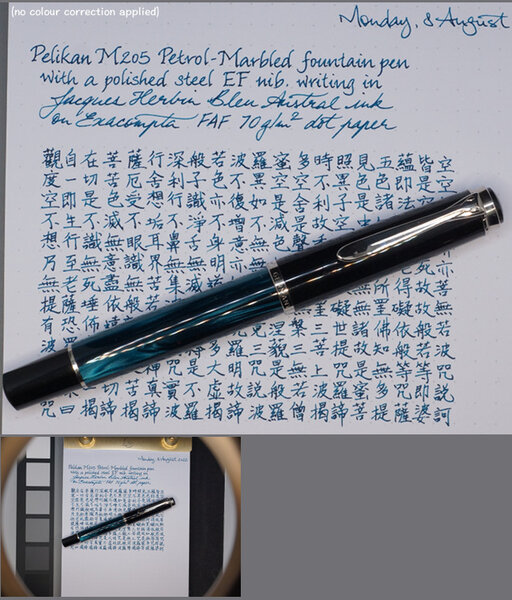 (no color correction applied)
Monday, 8 August
Pelikan M205 Petrol-Marbled fountain pen
with a polished steel EF nib. writing in
Jacques Herbin Bleu Austral ink
on Exacompta FAF 70g/m² dot paper
觀自在菩薩行深般若波羅蜜多時照見五蘊皆空
度一切苦厄舍利子色不異空空不異色色即是空
空即是色受想行識亦復如是舍利子是諸法空
不生不滅不垢不淨不增不減是故空中
想行識無眼耳鼻舌身意無色聲香
乃至無意識界無無明亦 老死亦
無老死盡無苦集滅道 所得故菩
提薩埵依般若 罣礙無罣礙故無
有恐怖 竟涅槃三世諸佛依般若
波 多羅三藐三菩提故知般若波
神咒是大明咒是無上咒是無等等咒
切苦真實不虛故說般若波羅蜜多咒即說
咒曰揭諦揭諦波羅揭諦波羅僧揭諦菩提薩婆訶